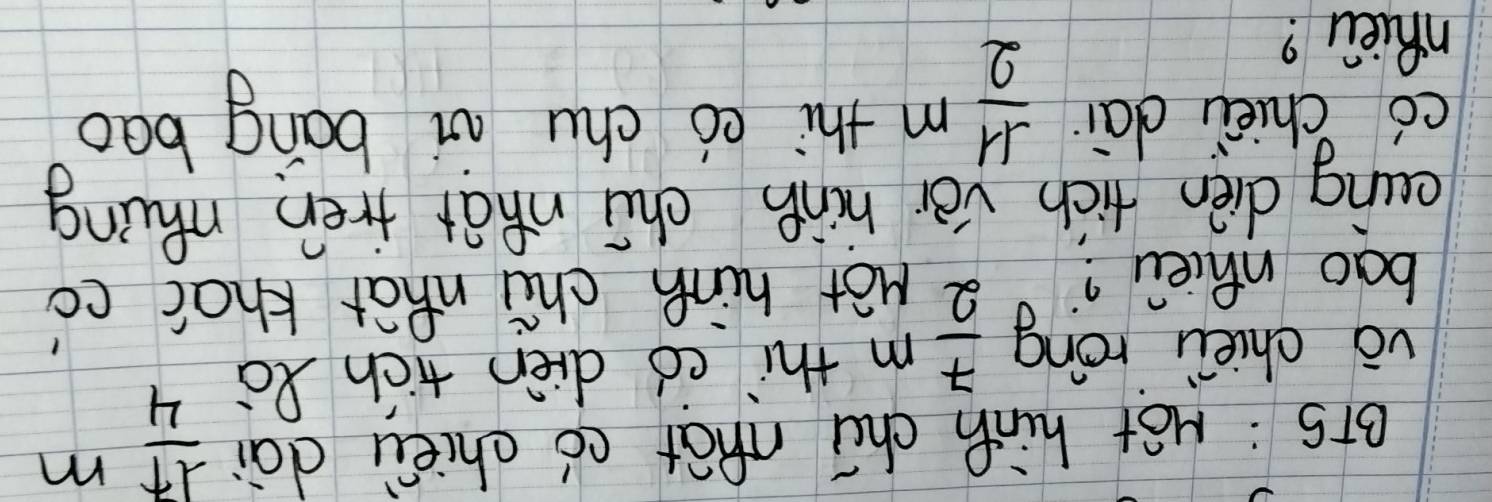 BT5 : Một hình chữ nhật có chiều dài 17/4 m
và chiều rộng 7/2 m thì có diện tích là
bao nhiêu ? Một hình chữ nhật khác có
cùng diện tích với hình chữ nhật trên nhưng
có chiều dài 11/2 m thì có chu vi bằng bao
nhiêu ?